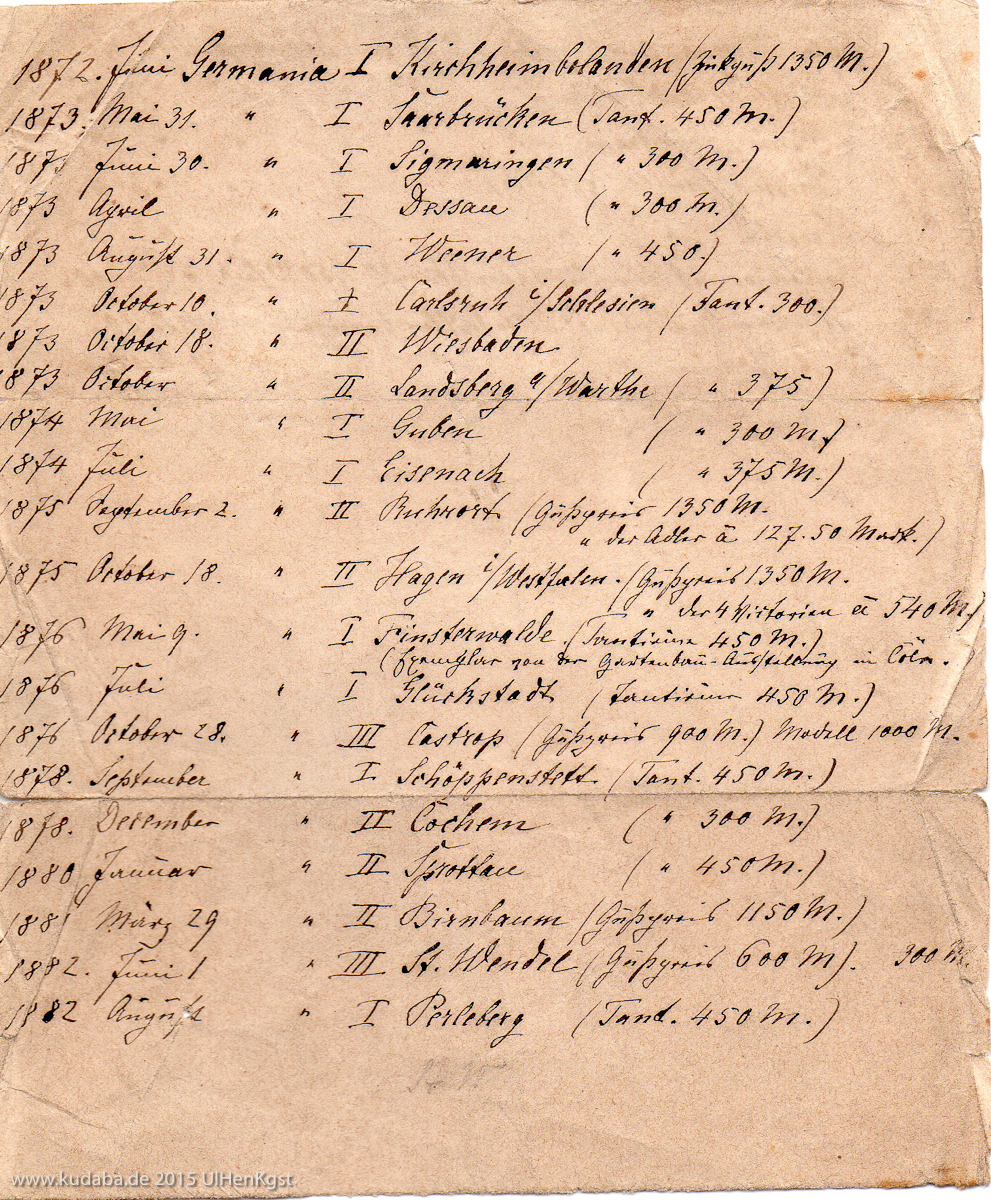 1872. Juni Germania I Kirchheimbolanden (Zinkguß 1350 M.)
1873. Mai 31. " I Saarbrücken (Tant. 450 M.)
1873 Juni 30. " I Sigmaringen ( " 300 M.)
1873 April " I Dessau ( " 300 M.)
1873 August 31. " I Weener ( " 450.)
1873 October 10. " I Carlsruh i/Schlesien (Tant. 300.)
1873 October 18. " II Wiesbaden
1873 October " II Landsberg a/Warthe ( " 375)
1874 Mai " I Guben ( " 300 M.)
1874 Juli " I Eisenach ( " 375 M.)
1875 September 2. " II Ruhrort (Gußpreis 1350 M.
" der Adler à 127.50 Mark.)
1875 October 18. " II Hagen i/Westfalen. (Gußpreis 1350 M.
" der 4 Victorien à 540 M.)
1876 Mai 9. " I Finsterwalde (Tantieme 450 M.)
(Exemplar von der Gartenbau-Ausstellung in Cöln.)
1876 Juli " I Glückstadt (Tantieme 450 M.)
1876 October 28. " III Castrop (Gußpreis 900 M.) Modell 1000 M.
1878. September " I Schöppenstett (Tant. 450 M.)
1878. December " II Cochem ( " 300 M.)
1880 Januar " II Sprottau ( " 450 M.)
1881 März 29 " II Birnbaum (Gußpreis 1150 M.)
1882. Juni 1 " III St. Wendel (Gußpreis 600 M). 300 M.
1882 August " I Perleberg (Tant. 450 M.)
www.kudaba.de 2015 UlHenKgst